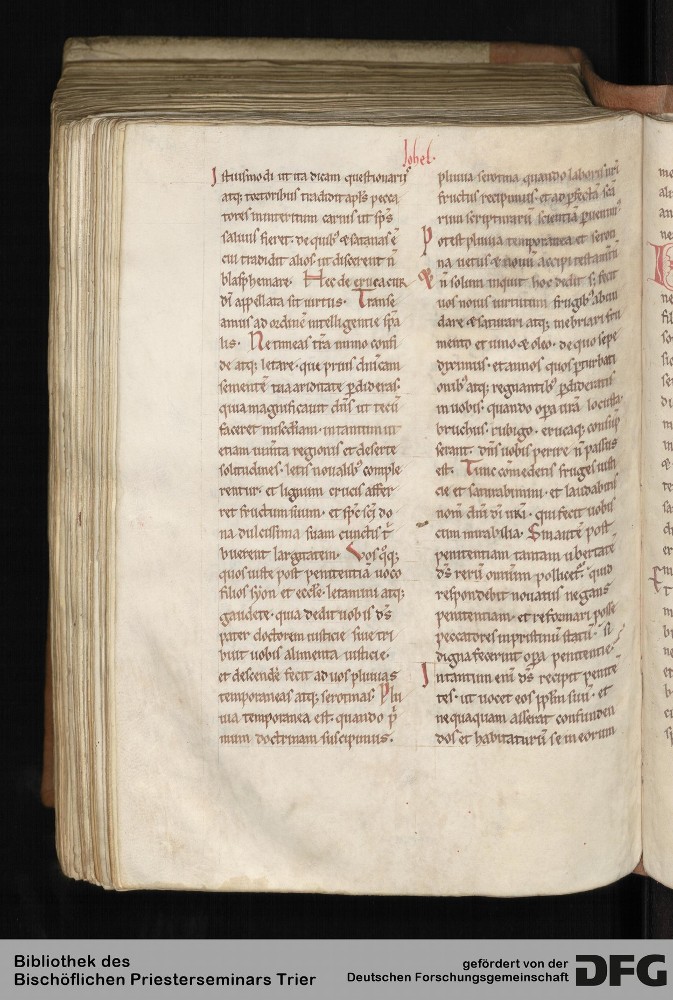 Iohel.
Istiusmodi ut ita dicam questionariis
atq; tortoribus tradidit apls pecca
tores in interitum carnis ut sps̄
saluus fieret. de quib; & satanas ē
cui tradidit alios ut discerent n̄
blasphemare. Hec de eruca cur
dī appellata sit uirtus. Transe
amus ad ordinē intelligentie spā
lis. Ne timeas tr̄a immo confi
de atq; letare. que prius dn̄icam
sementē tua ariditate ꝑdideras.
quia magnificauit dn̄s ut tecū
faceret misc̄diam. in tantum ut
etiam uniuersa regionis et deserte
solitudines. letis noualib; comple
rentur. et lignum crucis affer
ret fructum suum. et spc̄ sc̄i do
na dulcissima suam cunctis t̄
buerent largitatem. Vos q̄q;
quos iuste post penitentiā uoco
filios syon et eccl̄e. letamini atq;
gaudete. quia dedit uobis ds̄
pater doctorem iusticie siue tri
buit uobis alimenta iusticie.
et descendē fecit ad uos pluuias
temporaneas atq; serotinas. Plu
uia temporanea est. quando p̄
mum doctrinam suscipimus.
pluuia serotina quando laboris nr̄i
fructus recipimus. et ad ꝑfectā scā
rum scripturarū scientiā ꝑuenim;
Potest pluuia temporanea et seroti
na uetus & nouū accipi testamtū
& n̄ solum inquit hoc dedit. s; fecit
uos nouis uirtutum frugib; abun
dare & saturari atq; inebriari fru
mento et uino & oleo. de quo sepe
diximus. et annos quos ꝑturbati
onib; atq; regnantib; ꝑdideratis
in uobis. quando oꝑa ur̄a locusta.
bruchus. rubigo. erucaq; consūp
serant. dn̄s uobis perire n̄ passus
est. Tunc comedetis fruges iusti
cie et saturabimini. et laudabitis
nom̄ dn̄i dī ur̄i. qui fecit uobis
cum mirabilia. Sin autē post
penitentiam tantam ubertatē
ds̄ rerū omnium pollicet̄. quid
respondebit nouatus negans
penitentiam. et reformari posse
peccatores in pristinū statū. si
digna fecerint oꝑa penitentie.
Intantum enī ds̄ recipit penitē
tes. ut uocet eos ppl̄m suū. et
nequaquam asserat confunden
dos et habitaturū se in eorum
Bibliothek des
Bischöflichen Priesterseminars Trier
gefördert von der
Deutschen Forschungsgemeinschaft
DFG